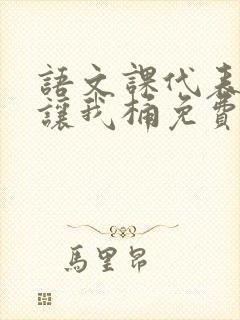 語文課代表
讓我桶免費
馬里昂